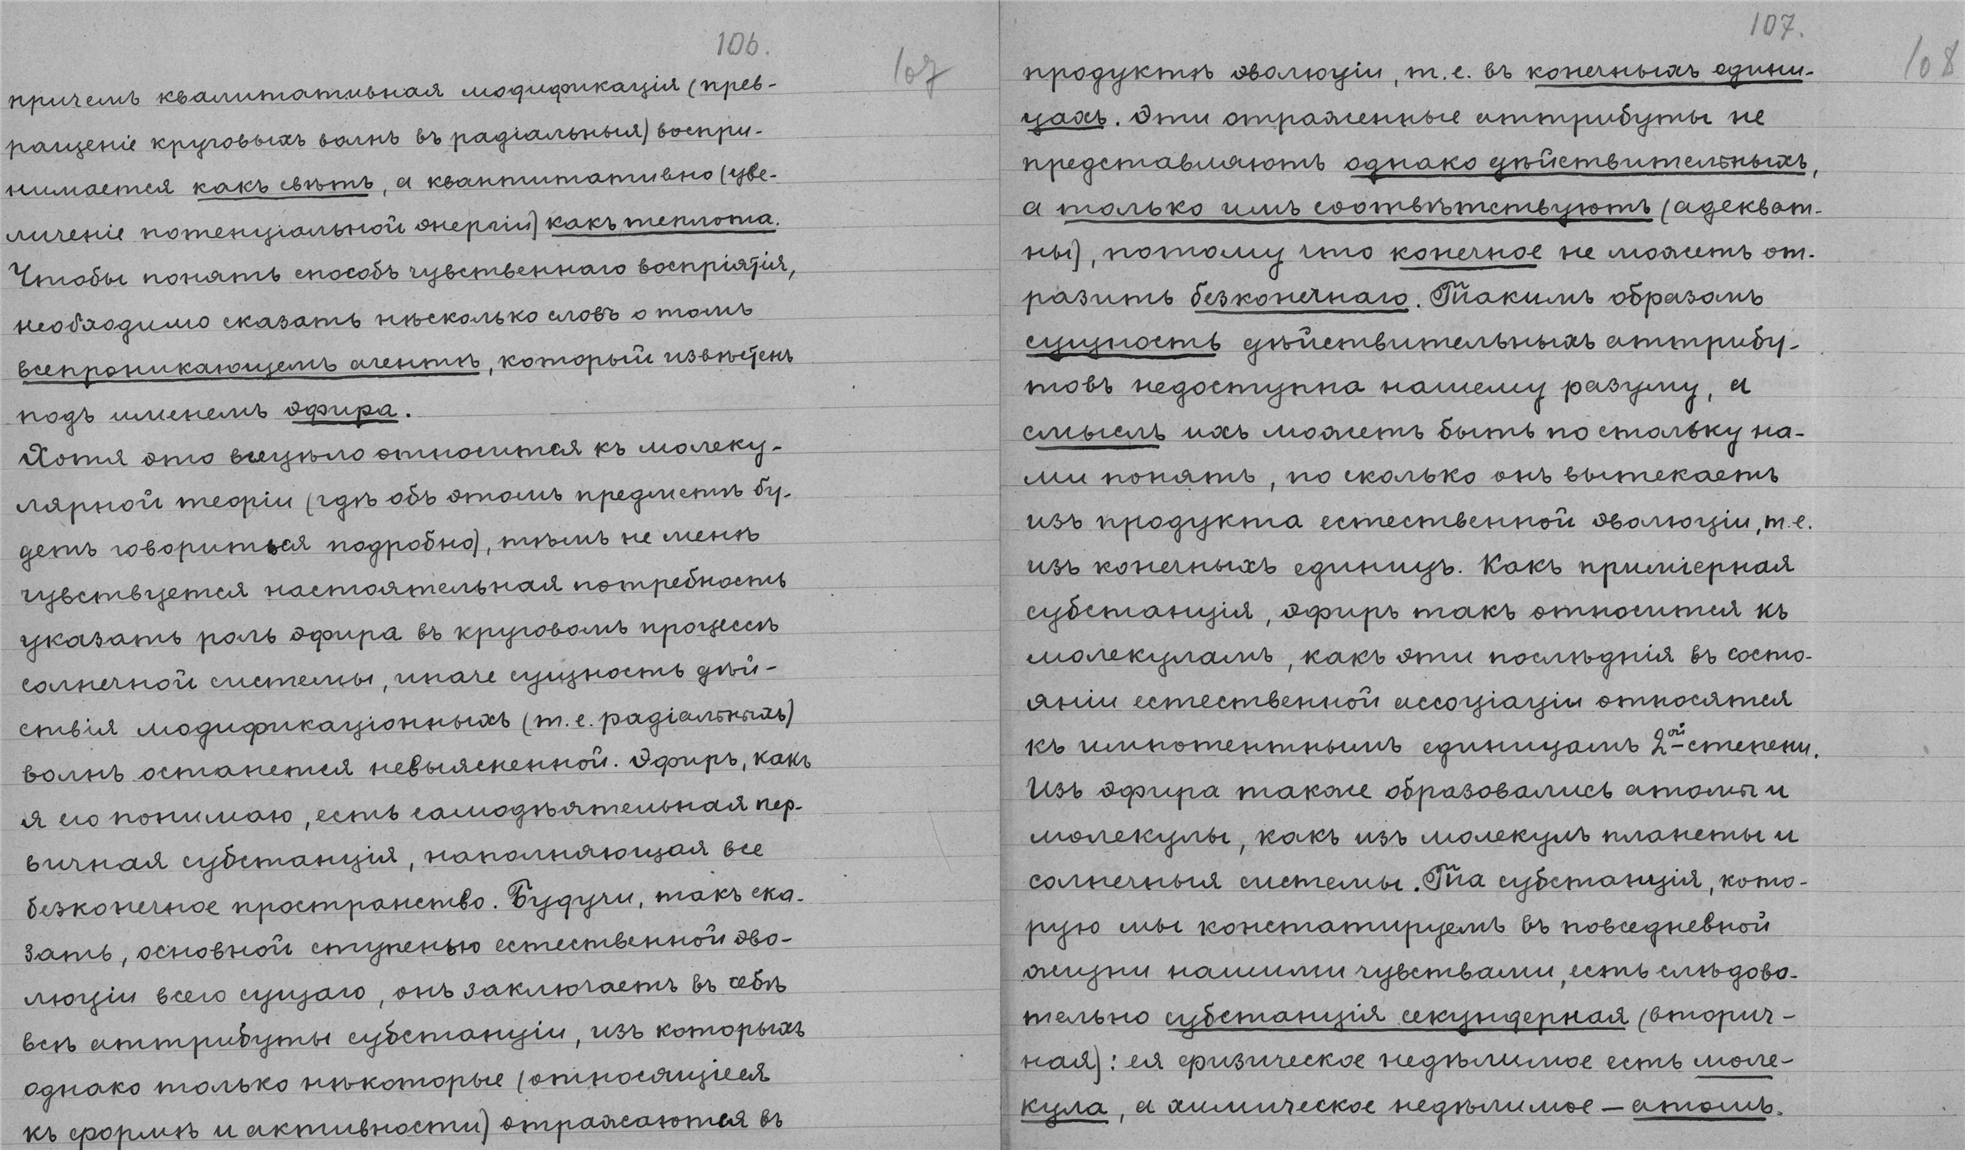 106.
107
причемъ квалитативная модификація (прев-
ращеніе круговыхъ волнъ въ радіальныя) воспри-
нимается какъ свѣтъ, а квантитативно (уве-
личеніе потенціальной энергіи) какъ теплота.
Чтобы понять способъ чувственнаго воспріятія,
необходимо сказать нѣсколько словъ о томъ
всепроникающемъ агентѣ, который извѣстенъ
подъ именемъ эфира.
Хотя это всецѣло относится къ молеку-
лярной теоріи (гдѣ объ этомъ предметѣ бу-
детъ говориться подробно), тѣмъ не менѣ
чувствуется настоятельная потребность
указать роль эфира въ круговомъ процессѣ
солнечной системы, иначе сущность дѣй-
ствія модификаціонныхъ (т.е. радіальныхъ)
волнъ останется невыясненной. Эфиръ, какъ
я его понимаю, есть самодѣятельная пер-
вичная субстанція, наполняющая все
безконечное пространство. Будучи, такъ ска-
зать, основной ступенью естественной эво-
люціи всего сущаго, онъ заключаетъ въ себѣ
всѣ аттрибуты субстанціи, изъ которыхъ
однако только нѣкоторые (относящіеся
къ формѣ и активности) отражаются въ
107.
108
продуктѣ эволюціи, т.е. въ конечныхъ едини-
цахъ. Эти отраженные аттрибуты не
представляютъ однако дѣйствительныхъ,
а только имъ соотвѣтствуютъ (адекват-
ны), потому что конечное не можетъ от-
разить безконечнаго. Такимъ образомъ
сущность дѣйствительныхъ аттрибу-
товъ недоступна нашему разуму, а
смыслъ ихъ можетъ быть по стольку на-
ми понятъ, по сколько онъ вытекаетъ
изъ продукта естественной эволюціи, т.е.
изъ конечныхъ единицъ. Какъ приміерная
субстанція, эфиръ такъ относится къ
молекуламъ, какъ эти послѣднія въ состо-
яніи естественной ассоціаціи относятся
къ импотентнымъ единицамъ 2ой степени.
Изъ эфира также образовались атомы и
молекулы, какъ изъ молекулъ планеты и
солнечныя системы. Та субстанція, кото-
рую мы констатируемъ въ повседневной
жизни нашими чувствами, есть слѣдова-
тельно субстанція секундерная (вторич-
ная): ея физическое недѣлимое есть моле-
кула, а химическое недѣлимое — атомъ.